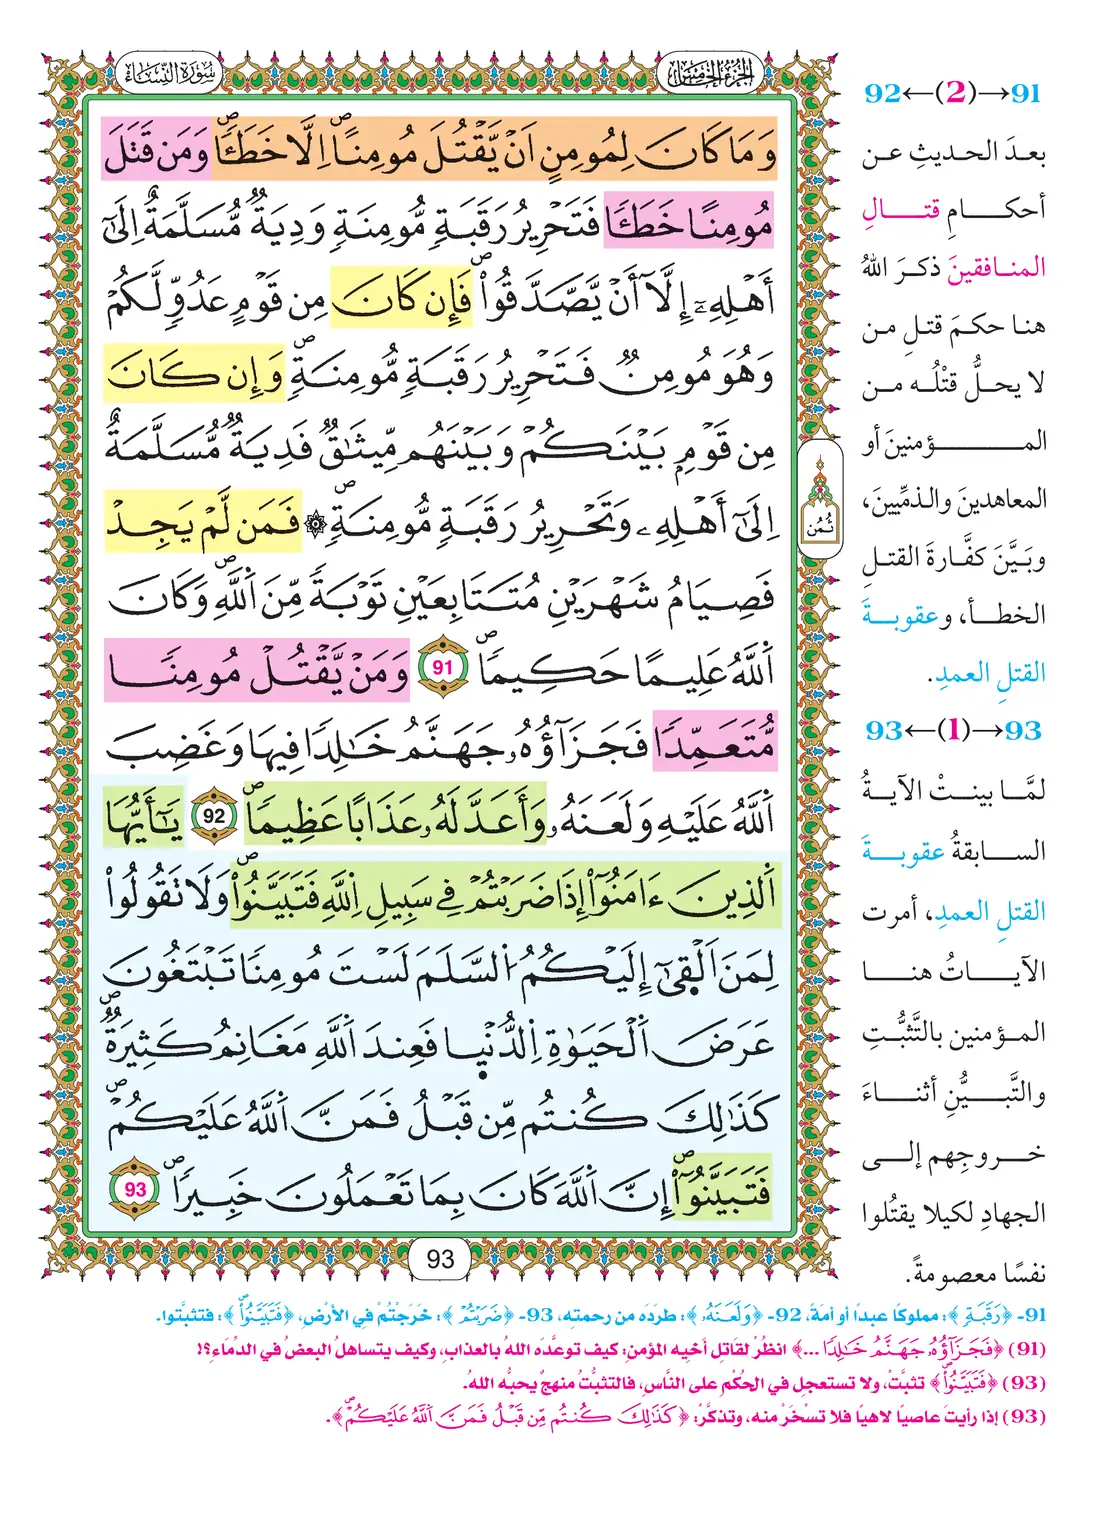 الجزء الخامس
سورة النساء
وَمَا كَانَ لِمُومِنٍ اَنْ يَّقْتُلَ مُومِناً اِلَّا خَطَـٔاً وَمَن قَتَلَ
مُومِناً خَطَـٔاً فَتَحْرِيرُ رَقَبَةٍ مُّومِنَةٍ وَدِيَةٌ مُّسَلَّمَةٌ اِلَىٰٓ
أَهْلِهِۦٓ إِلَّآ أَنْ يَّصَّدَّقُواْ فَإِن كَانَ مِن قَوْمٍ عَدُوٍّ لَّكُمْ
وَهُوَ مُومِنٌ فَتَحْرِيرُ رَقَبَةٍ مُّومِنَةٍ وَإِن كَانَ
مِن قَوْمِۭ بَيْنَكُمْ وَبَيْنَهُم مِّيثَٰقٌ فَدِيَةٌ مُّسَلَّمَةٌ
اِلَىٰٓ أَهْلِهِۦ وَتَحْرِيرُ رَقَبَةٍ مُّومِنَةٍ ۞ فَمَن لَّمْ يَجِدْ
فَصِيَامُ شَهْرَيْنِ مُتَتَابِعَيْنِ تَوْبَةً مِّنَ اَللَّهِ وَكَانَ
اَللَّهُ عَلِيماً حَكِيماً 91 وَمَنْ يَّقْتُلْ مُومِناً
مُّتَعَمِّداً فَجَزَآؤُهُۥ جَهَنَّمُ خَٰلِداً فِيهَا وَغَضِبَ
اَللَّهُ عَلَيْهِ وَلَعَنَهُۥ وَأَعَدَّ لَهُۥ عَذَاباً عَظِيماً 92 يَٰٓأَيُّهَا
اَلذِينَ ءَامَنُوٓاْ إِذَا ضَرَبْتُمْ فِے سَبِيلِ اِللَّهِ فَتَبَيَّنُواْ وَلَا تَقُولُواْ
لِمَنَ اَلْقَىٰٓ إِلَيْكُمُ اُلسَّلَمَ لَسْتَ مُومِناً تَبْتَغُونَ
عَرَضَ اَلْحَيَوٰةِ اِلدُّنْيَا فَعِندَ اَللَّهِ مَغَانِمُ كَثِيرَةٌ
كَذَٰلِكَ كُنتُم مِّن قَبْلُ فَمَنَّ اَللَّهُ عَلَيْكُمْ
فَتَبَيَّنُوٓاْ إِنَّ اَللَّهَ كَانَ بِمَا تَعْمَلُونَ خَبِيراً 93
ثُمُن
93
91→(2)←92
بعدَ الحديثِ عن
أحكامِ قتالِ
المنافقينَ ذكرَ اللهُ
هنا حكمَ قتلِ من
لا يحلُّ قتْلُه من
المؤمنينَ أو
المعاهدينَ والذمِّيينَ،
وبَيَّنَ كفَّارةَ القتلِ
الخطأ، وعقوبةَ
القتلِ العمدِ.
93→(1)←93
لمَّا بينتْ الآيةُ
السابقةُ عقوبةَ
القتلِ العمدِ، أمرت
الآياتُ هنا
المؤمنين بالتَّثبُّتِ
والتَّبيُّنِ أثناءَ
خروجِهم إلى
الجهادِ لكيلا يقتُلوا
نفسًا معصومةً.
91- ﴿رَقَبَةٍ﴾: مملوكًا عبدًا أو أمَةً، 92- ﴿وَلَعَنَهُۥ﴾: طردَه من رحمته، 93- ﴿ضَرَبْتُمْ﴾: خَرَجْتُمْ في الأرْضِ، ﴿فَتَبَيَّنُواْ﴾: فتثبَّتوا.
(91) ﴿فَجَزَآؤُهُۥ جَهَنَّمُ خَٰلِداً ...﴾ انظُرْ لقَاتلِ أخيه المؤمنِ: كيف توعَّدَه اللهُ بالعذابِ، وكيف يتساهلُ البعضُ في الدِّماءِ؟!
(93) ﴿فَتَبَيَّنُواْ﴾ تثبَّتْ، ولا تستعجل في الحُكْمِ على النَّاسِ، فالتثبُّتُ منهجٌ يحبُّه اللهُ.
(93) إذا رأيتَ عاصيًا لاهيًا فلا تسْخَرْ منه، وتذكَّرْ: ﴿كَذَٰلِكَ كُنتُم مِّن قَبْلُ فَمَنَّ اَللَّهُ عَلَيْكُمْ﴾.